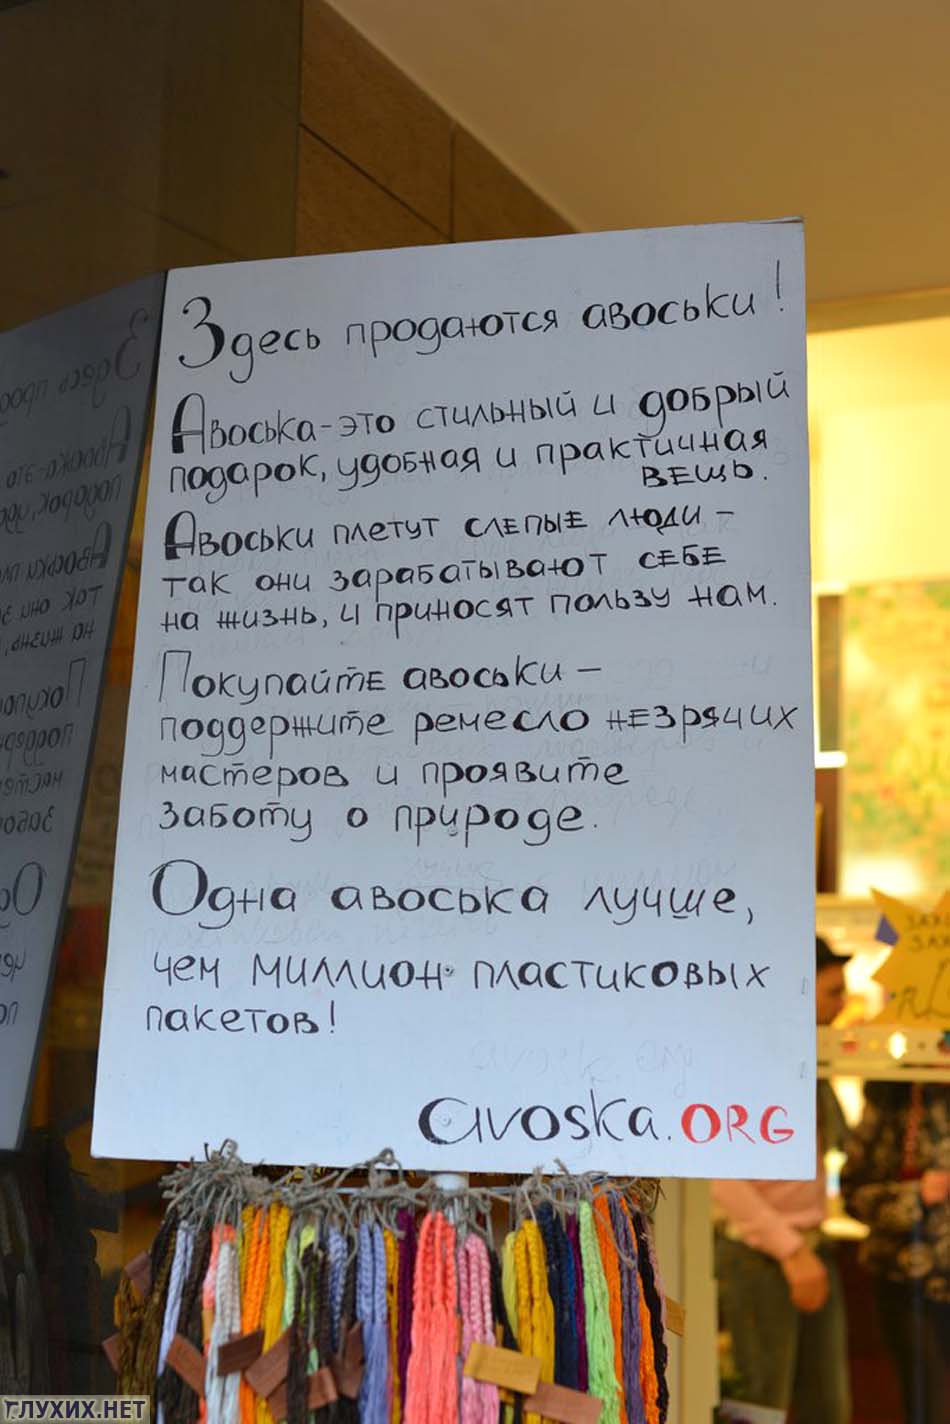 Здесь продаются авоськи!
Авоська - это стильный и добрый
подарок, удобная и практичная
вещь.
Авоськи плетут слепые люди -
так они зарабатывают себе
на жизнь, и приносят пользу нам.
Покупайте авоськи -
поддержите ремесло незрячих
мастеров и проявите
заботу о природе.
Одна авоська лучше,
чем миллион пластиковых
пакетов!
avoska.ORG
ГЛУХИХ.НЕТ